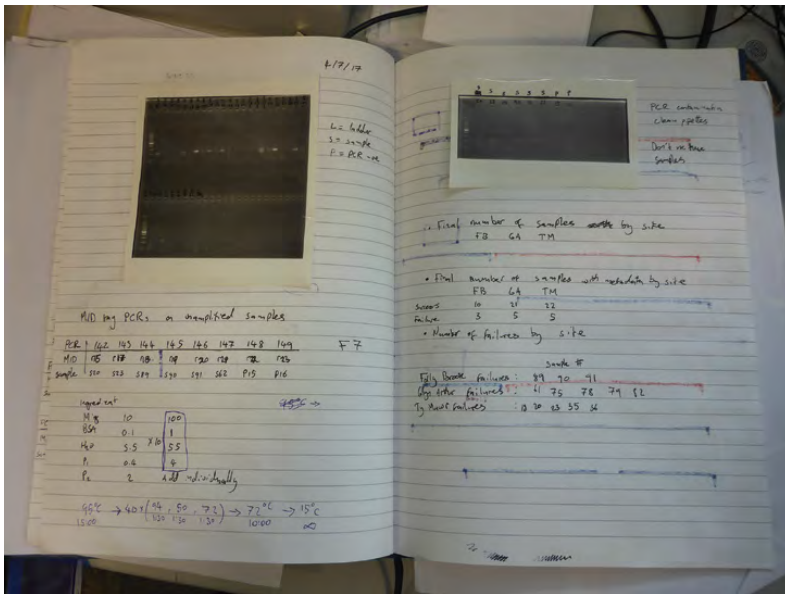 4/7/17
L = ladder
S = sample
P = PCR -ve
MID tag PCRs on unamplified samples
PCR 142 143 144 145 146 147 148 149
F7
MID
Sample S20 S23 S89 S90 S91 S62 P15 P16
Ingredient
10 100
BSA 0.1 1
H2O 5.5 x10 55
P1 0.4 4
P2 2 add individually
95°C → 40x (94, 50, 72) → 72°C → 15°C
15:00 1:30 1:30 1:30 10:00 ∞
PCR contamination
clean pipettes
Don't use these
samples
Final number of samples by site
FB GA TM
• Final number of samples with metadata by site
FB GA TM
Success 10 21 22
Failure 3 5 5
• Number of failures by site
Sample #
failures: 89 90 91
failures: 61 75 78 79 82
failures: 13 20 23 55 56